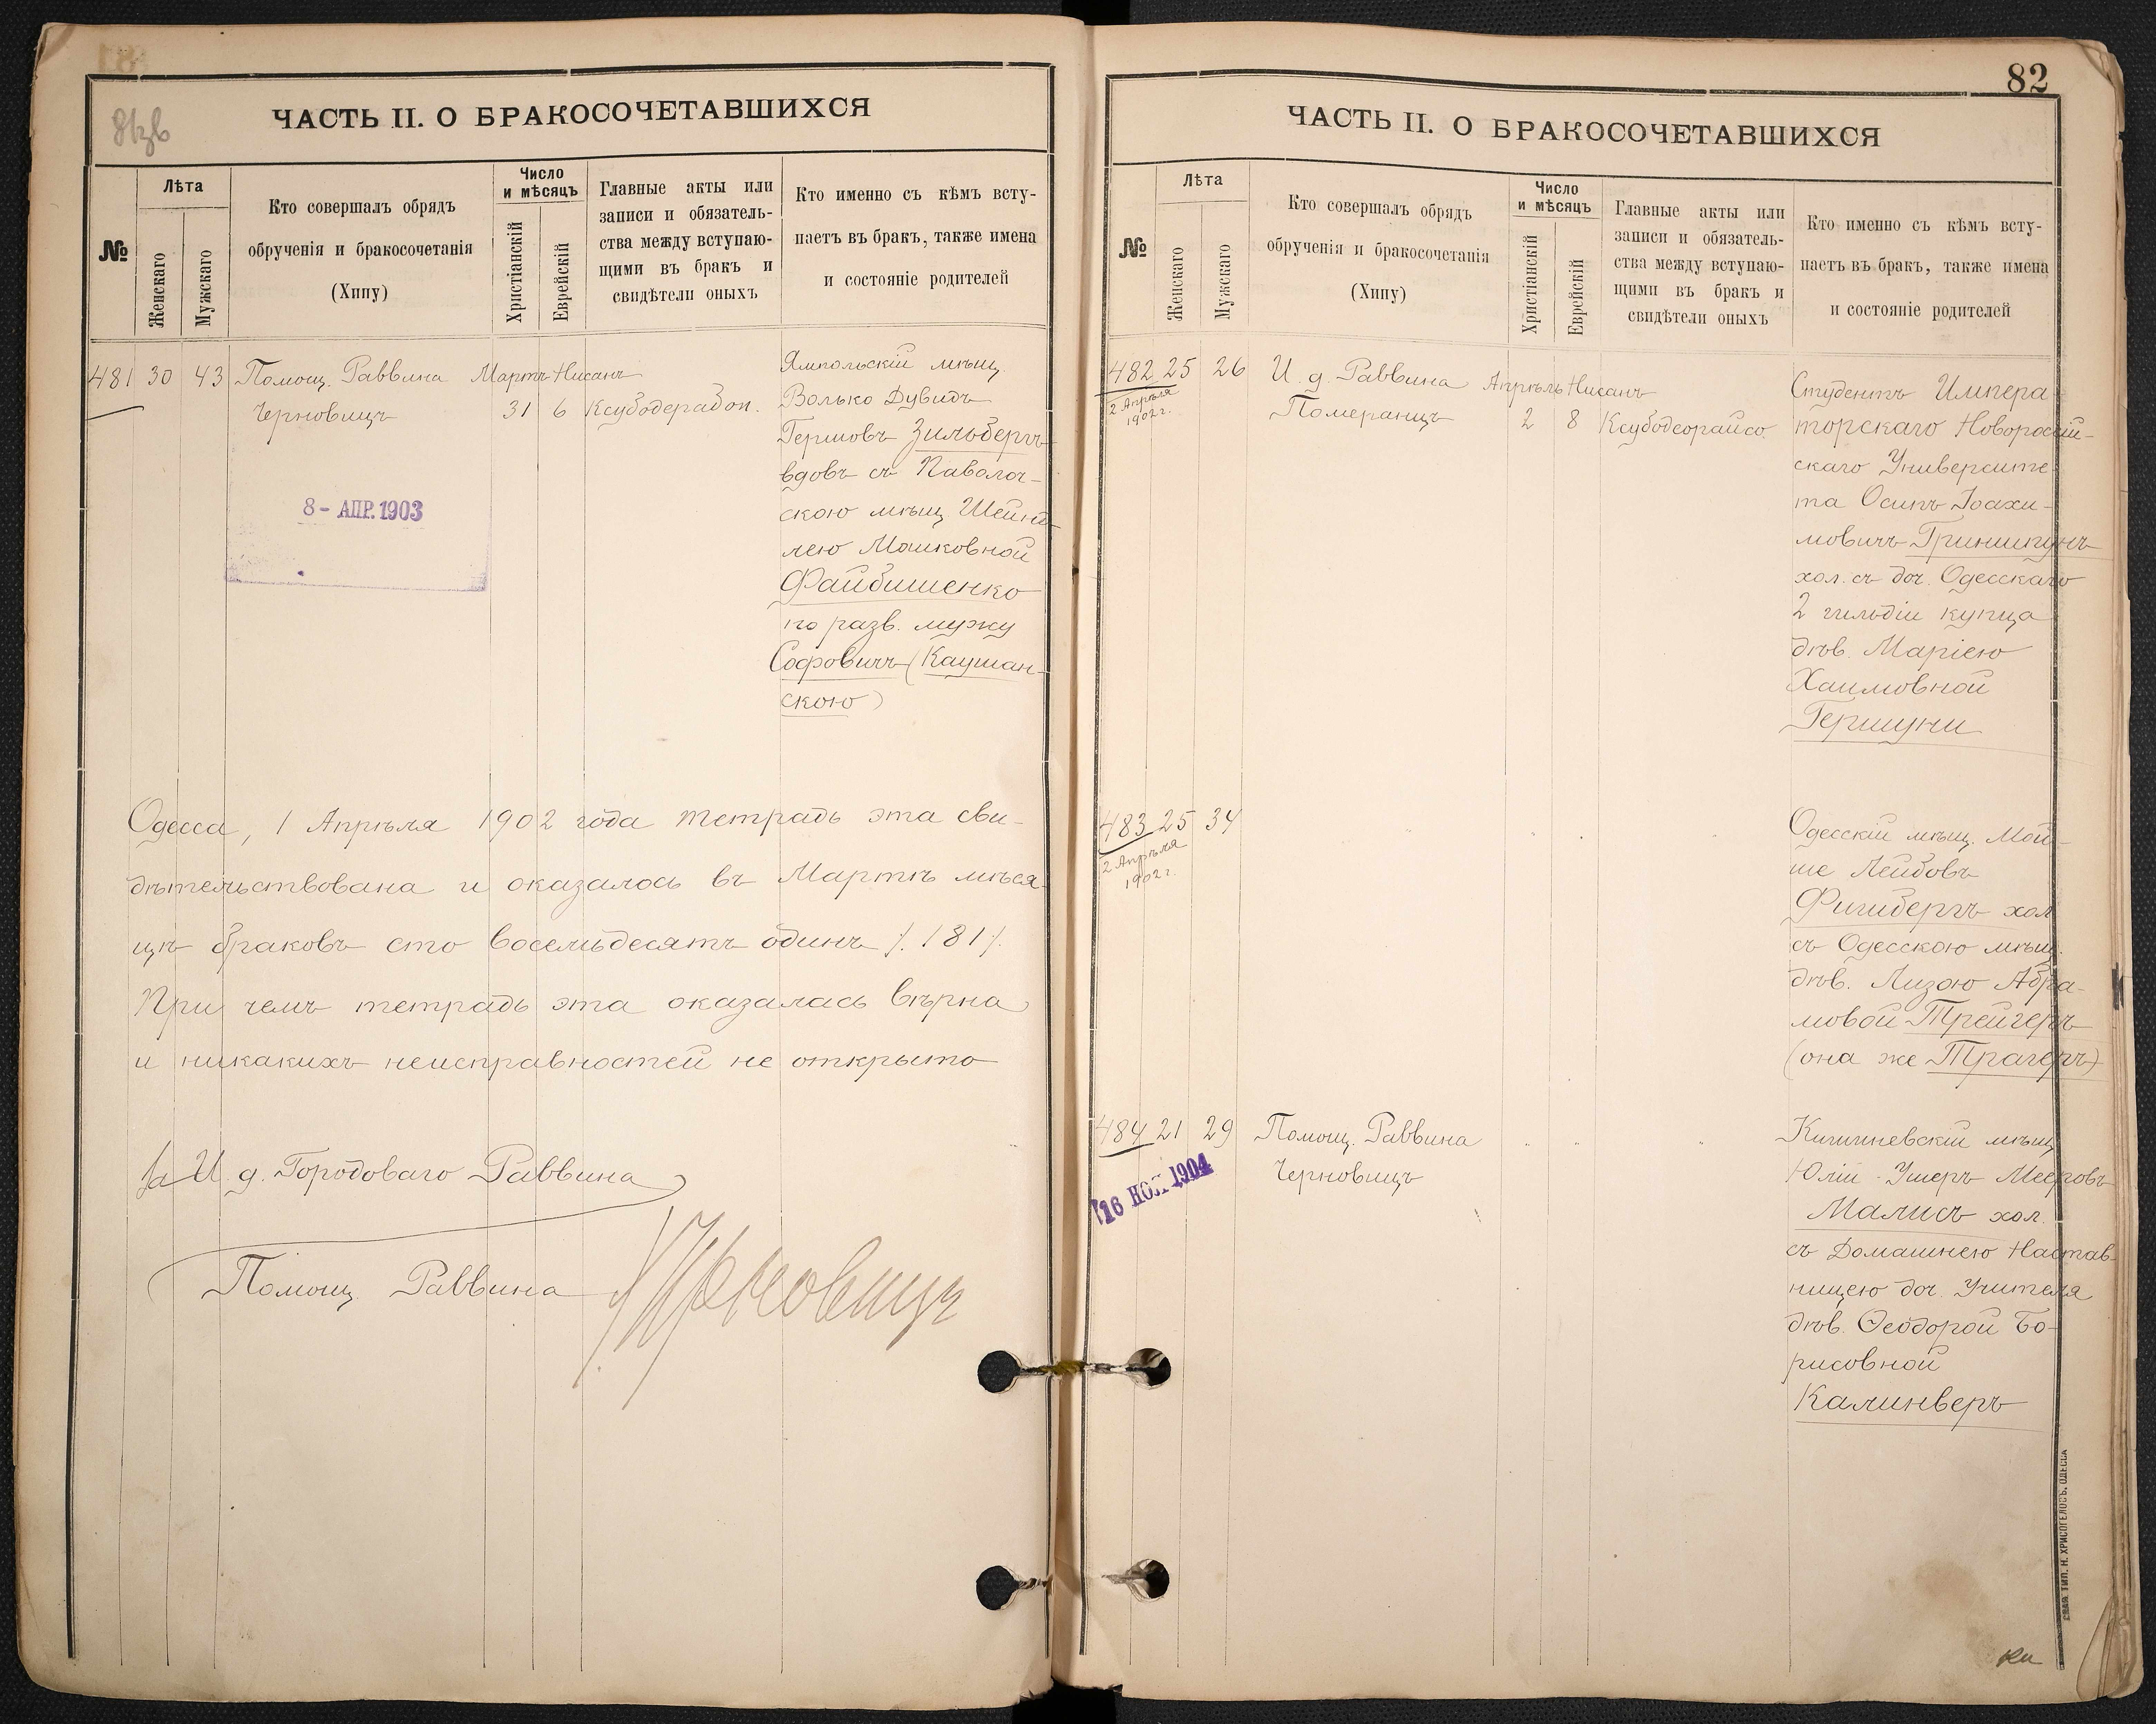 81зв
ЧАСТЬ II. О БРАКОСОЧЕТАВШИХСЯ
№
Лѣта
Женскаго
Мужскаго
Кто совершалъ обрядъ
обрученія и бракосочетанія
(Хипу)
Число
и мѣсяцъ
Христіанскій
Еврейскій
Главные акты или
записи и обязатель-
ства между вступаю-
щими въ бракъ и
свидѣтели оныхъ
Кто именно съ кѣмъ всту-
паетъ въ бракъ, также имена
и состояніе родителей
481 30 43 Помощ. Раввина Мартъ Нисанъ
Черновицъ 31 6 Ксубодерабон.
Ямпольскій мѣщ.
Волько Дувидъ
Гершовъ Зильбергъ
вдовъ съ Паволоч-
скою мѣщ Шейнд-
лею Мошковной
Файбишенко
по разв. мужу
Софовичъ (Каушан-
скою)
8 - АПР. 1903
Одесса, 1 Апрѣля 1902 года тетрадь эта сви-
дѣтельствована и оказалось въ Мартѣ мѣся-
цѣ браковъ сто восемьдесятъ одинъ /. 181 /.
При чемъ тетрадь эта оказалась вѣрна
и никакихъ неисправностей не открыто
За И. д. Городоваго Раввина
Помощ. Раввина Черновицъ
82
ЧАСТЬ II. О БРАКОСОЧЕТАВШИХСЯ
№
Лѣта
Женскаго
Мужскаго
Кто совершалъ обрядъ
обрученія и бракосочетанія
(Хипу)
Число
и мѣсяцъ
Христіанскій
Еврейскій
Главные акты или
записи и обязатель-
ства между вступаю-
щими въ бракъ и
свидѣтели оныхъ
Кто именно съ кѣмъ всту-
паетъ въ бракъ, также имена
и состояніе родителей
482 25 26 И. д. Раввина Апрѣль Нисанъ
2 Апрѣля
1902 г.
Померанцъ 2 8 Ксубодеорайсо.
Студентъ Импера
торскаго Новороссій-
скаго Университе-
та Осипъ Іоахи-
мовичъ Гриншпунъ
хол. съ доч. Одесскаго
2 гильдіи купца
дѣв. Маріею
Хаимовной
Гершуни
483 25 34 " " " "
2 Апрѣля
1902 г.
Одесскій мѣщ. Мой-
ше Лейбовъ
Фишбергъ хол
съ Одесскою мѣщ.
дѣв. Лизою Абра-
мовой Трейгеръ
(она же Трагеръ)
484 21 29 Помощ. Раввина " " "
Черновицъ
16 НОЯ 1904
Кишиневскій мѣщ
Юлій - Ушеръ Мееровъ
Малисъ хол.
съ Домашнею Настав-
ницею доч. Учителя
дѣв. Ѳеодорой Бо-
рисовной
Калинверъ
ТИП. Н. ХРИСОГЕЛОСЪ, ОДЕССА